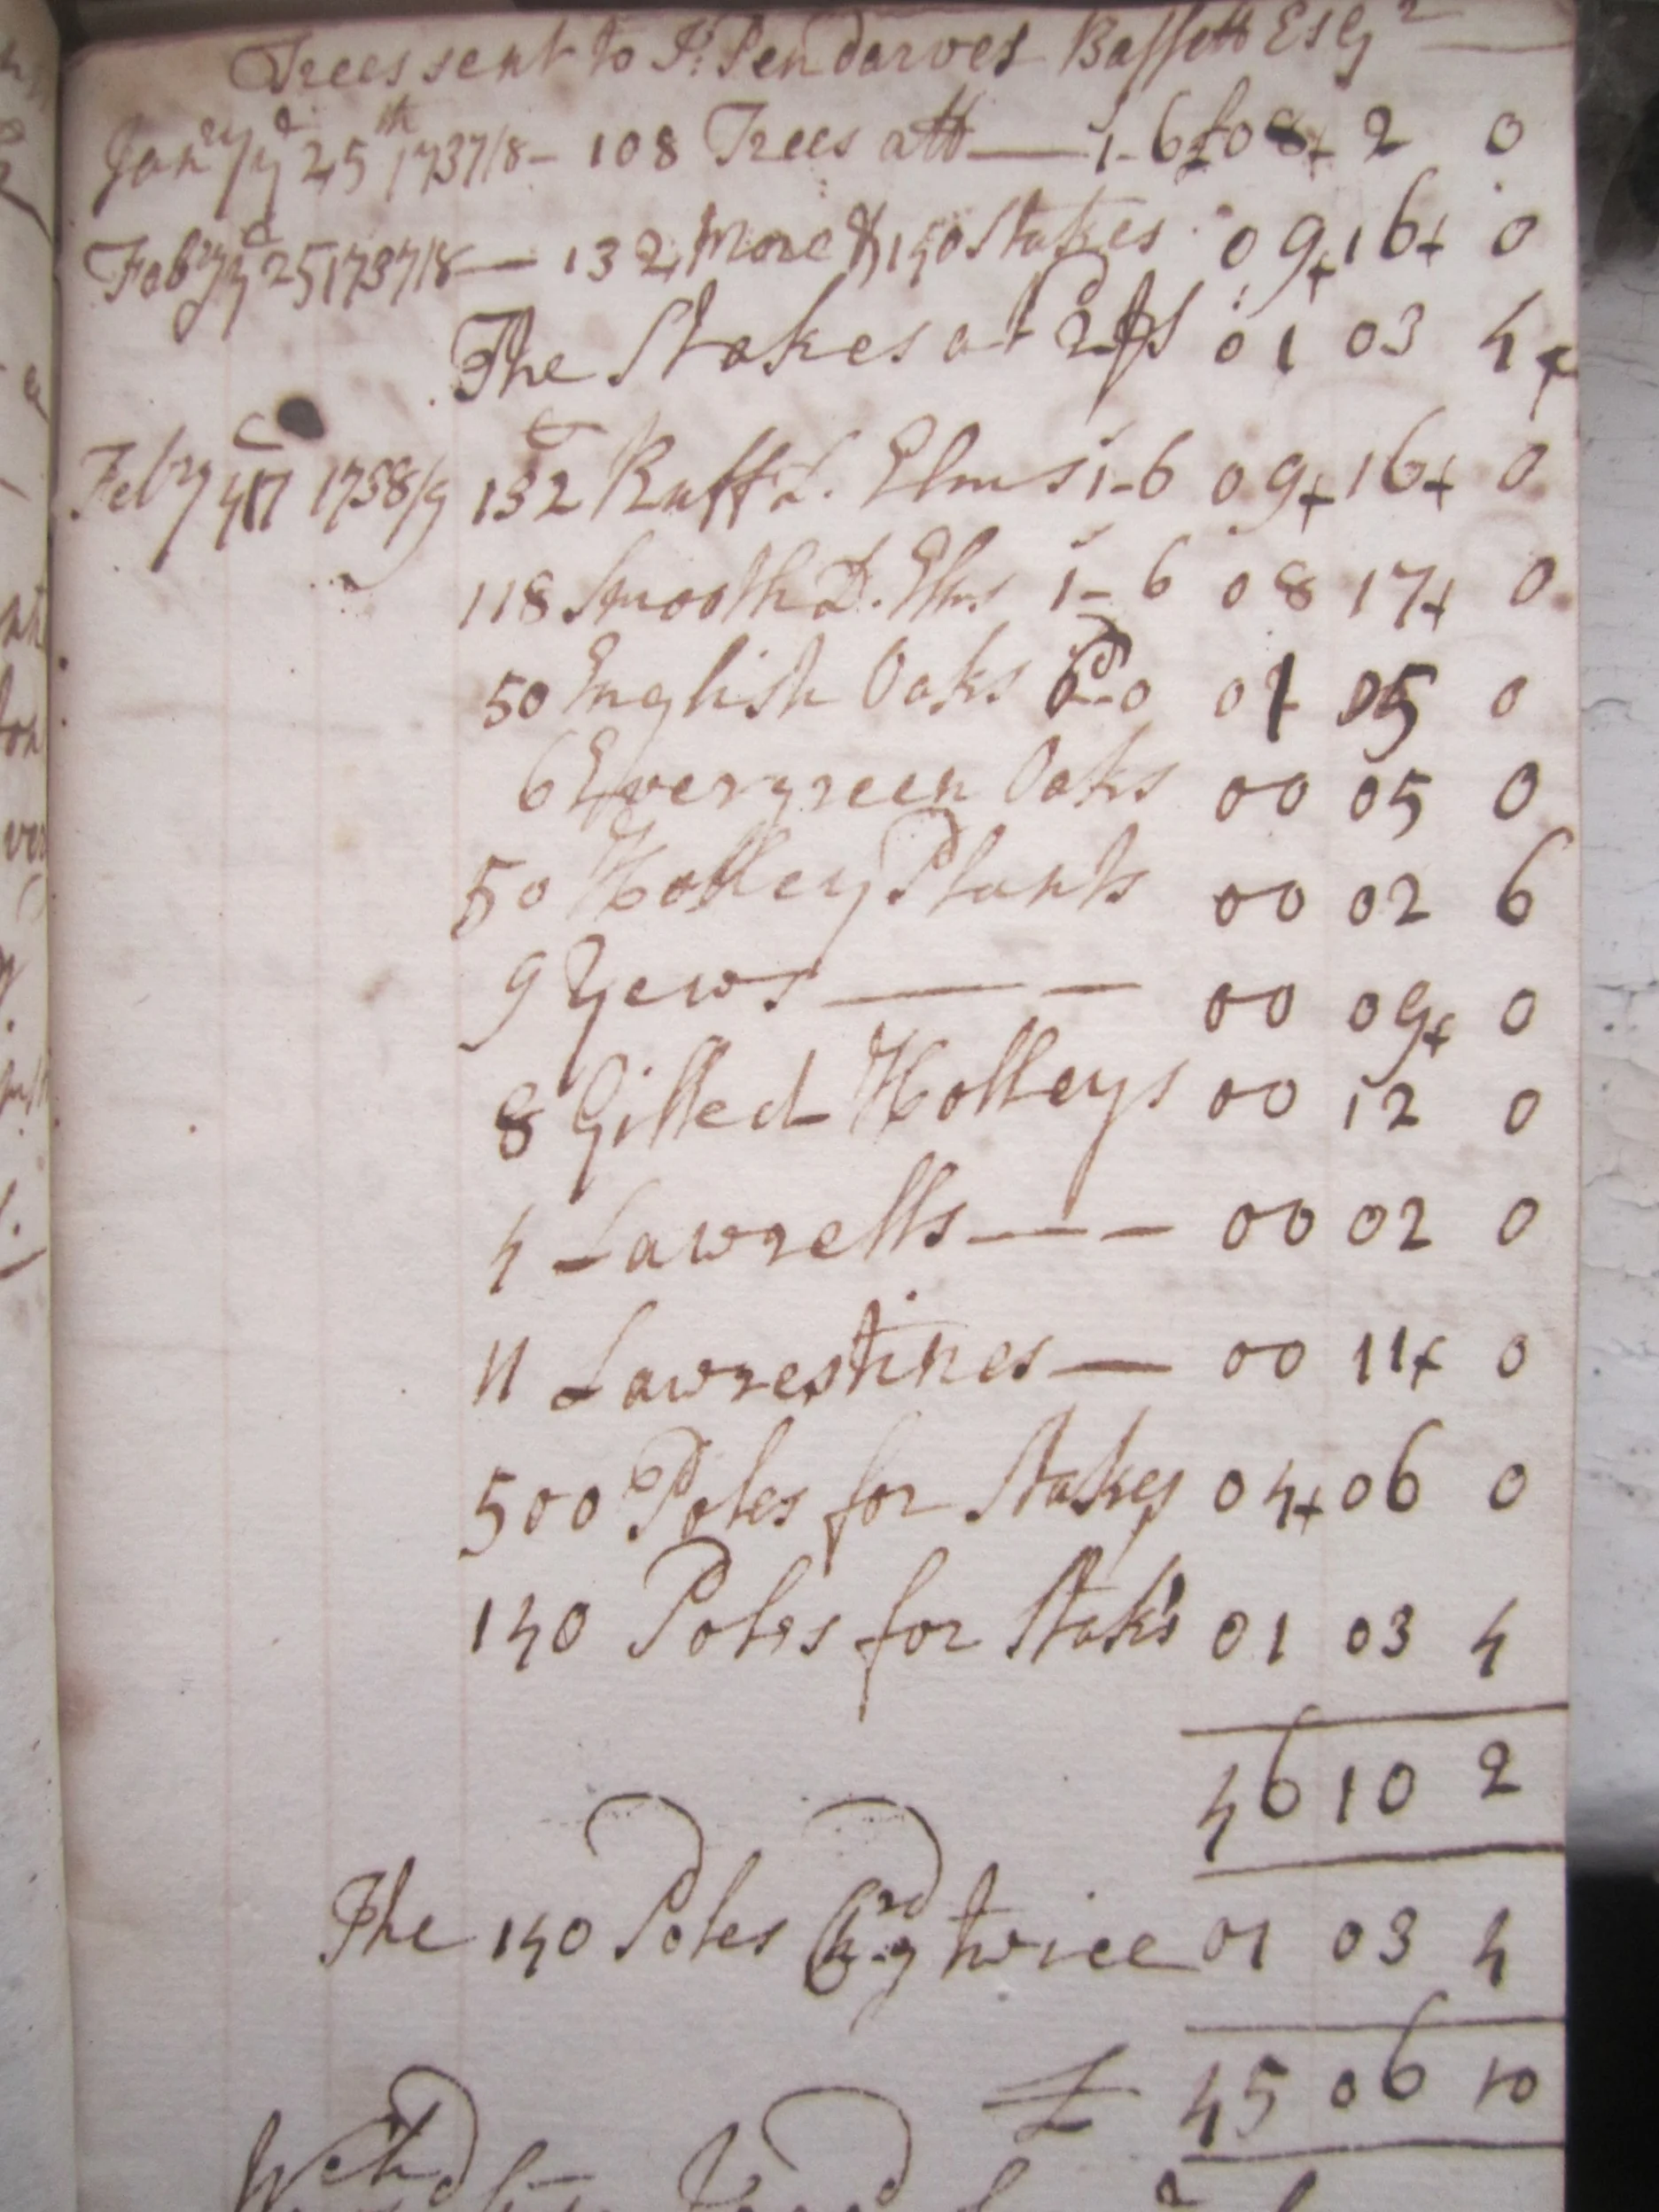 Trees sent to P: Pendarves Bassett Esqr
Janry ye 25th 1737/8 - 108 Trees att — 1-6 £08 2 0
Febry ye 25 1737/8 — 132 more & 140 Stakes 09 16 0
The Stakes at 2d ps 01 03 4
Febry ye 17 1738/9 132 Ruff L. Elms 1-6 09 16 0
118 Smooth D. Elms 1-6 08 17 0
50 English Oaks 6d-0 01 05 0
6 Evergreen Oaks 00 05 0
50 Holley Plants 00 02 6
9 Yews — — 00 09 0
8 Gilled Holleys 00 12 0
4 Lawrells — — 00 02 0
11 Lawrestines — 00 11 0
500 Poles for Stakes 04 06 0
140 Poles for Stak's 01 03 4
46 10 2
The 140 Poles twice 01 03 4
£ 45 06 10